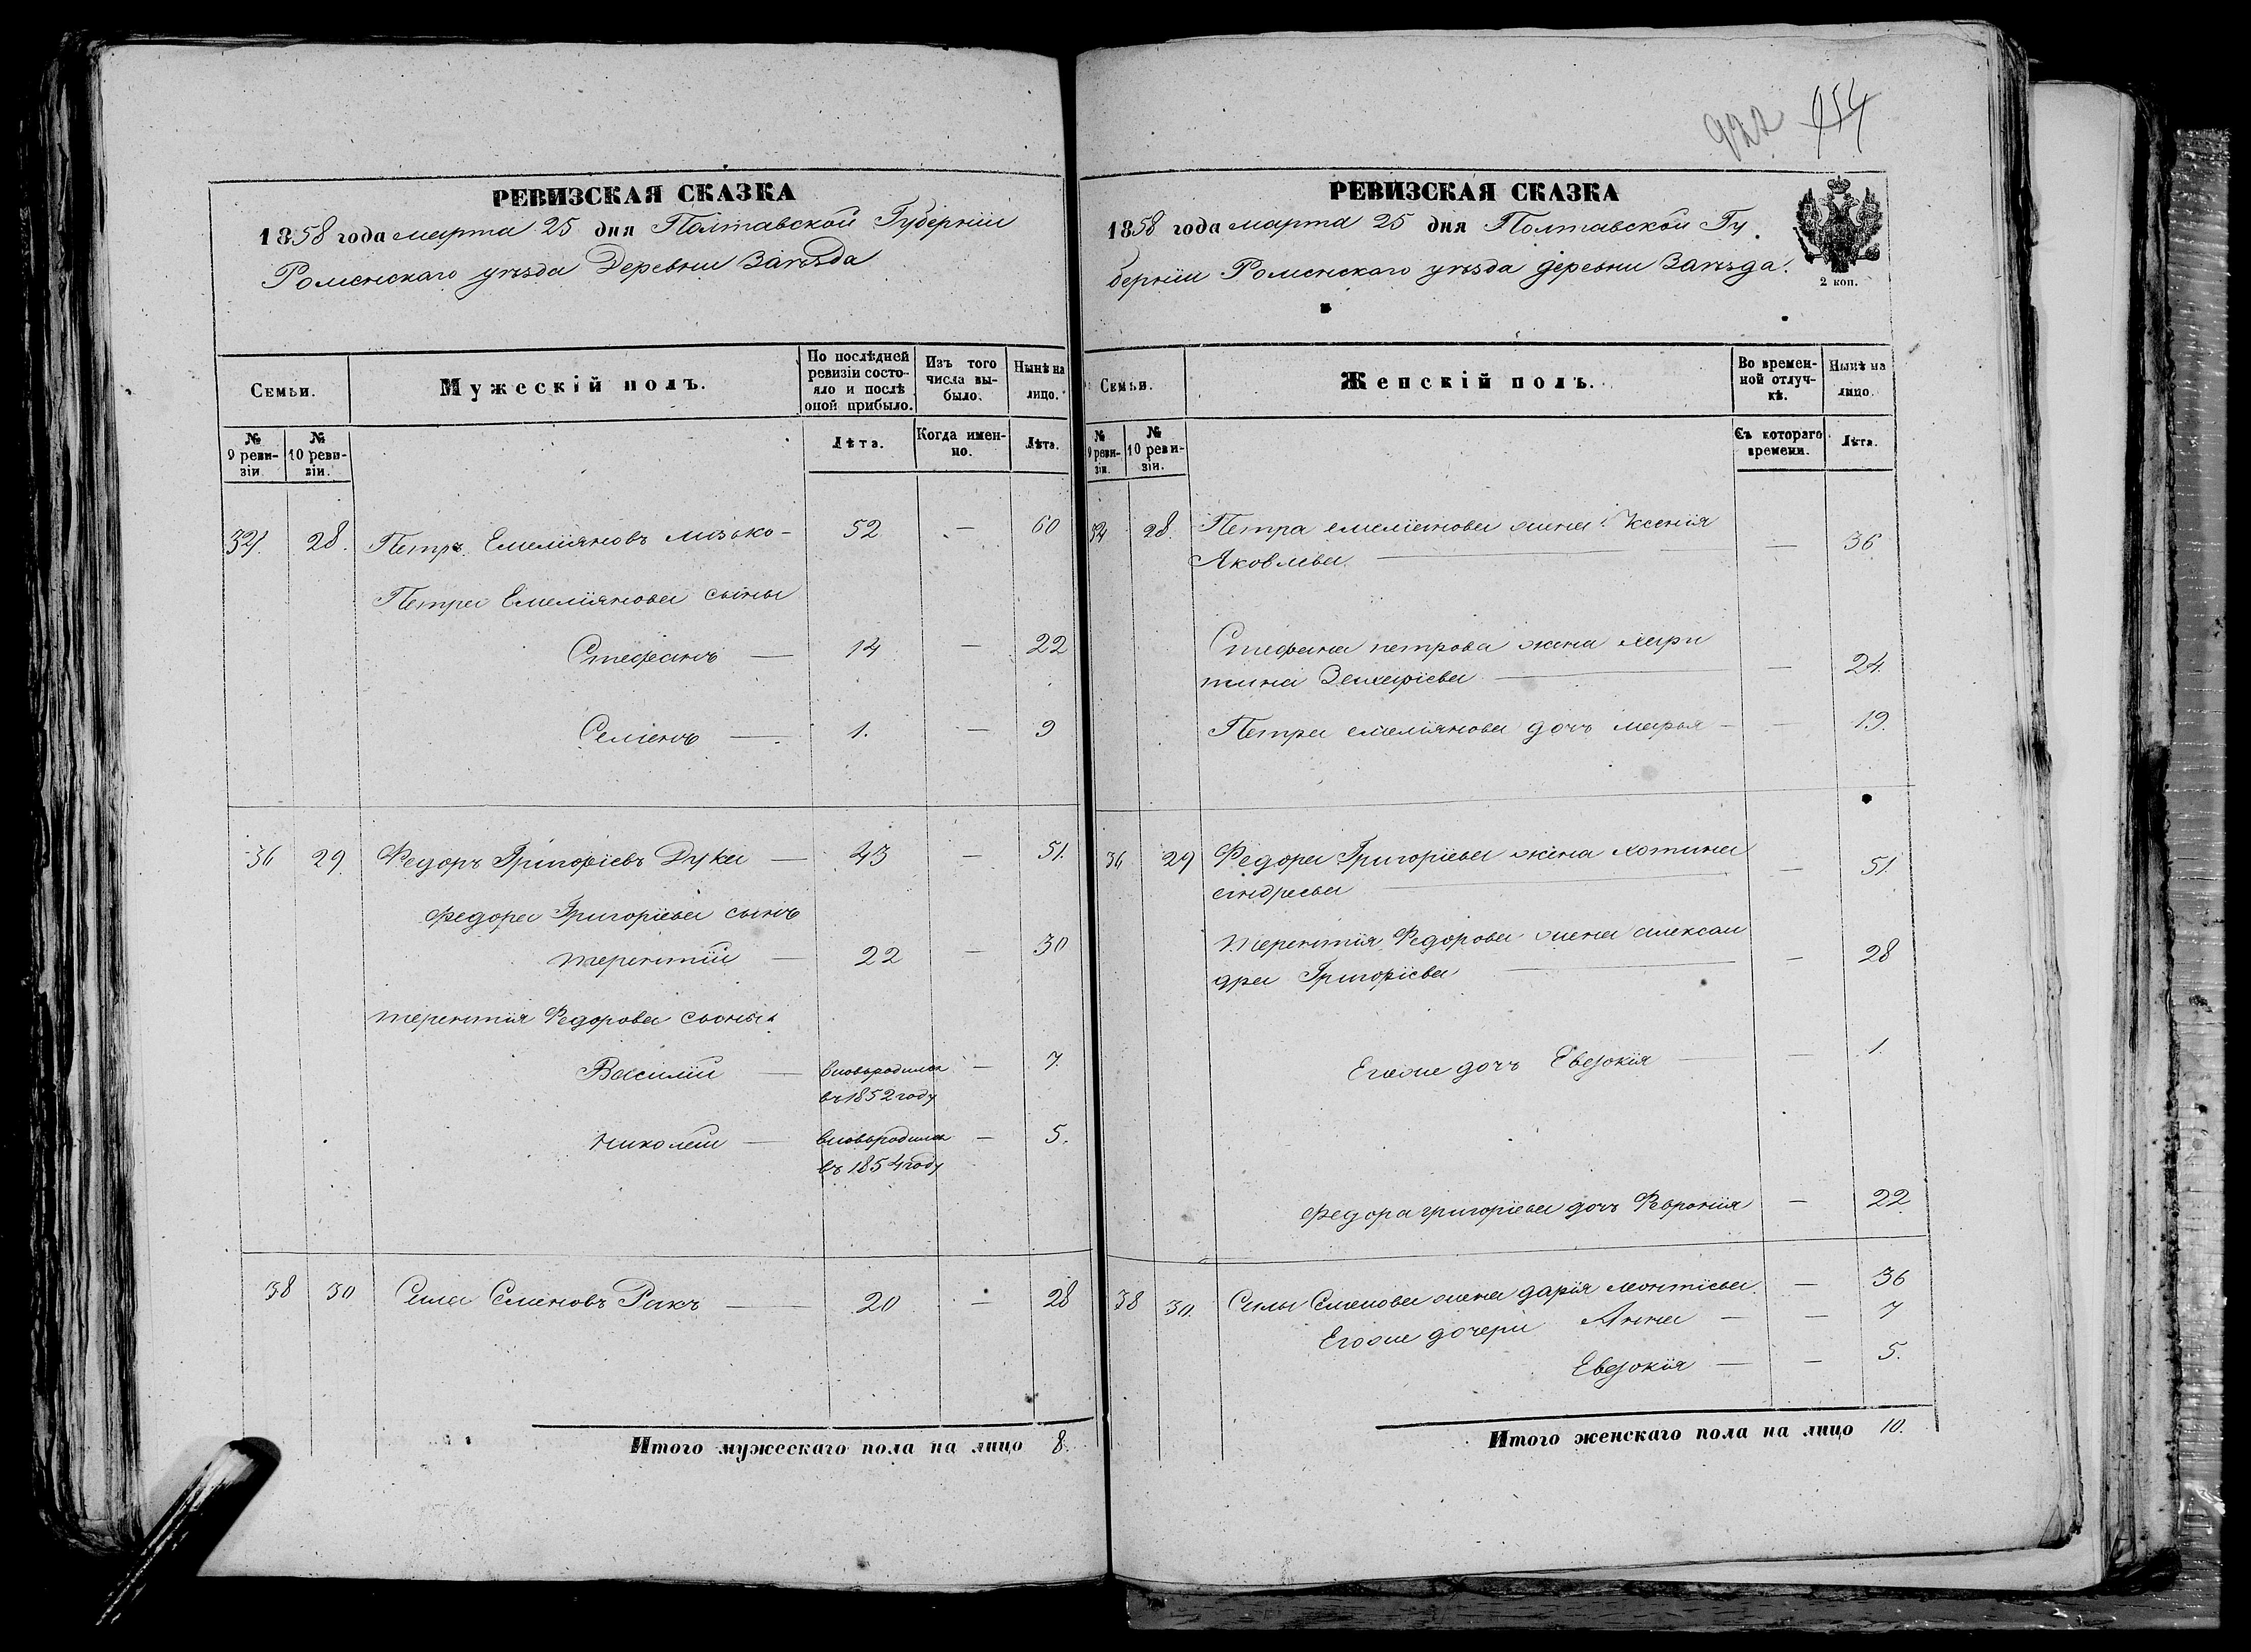 РЕВИЗСКАЯ СКАЗКА
1858 года марта 25 дня Полтавской Губерніи
Роменскаго уѣзда Деревни Заѣзда
Семьи.
Мужескій полъ.
По послѣдней ревизіи состояло и послѣ оной прибыло.
Изъ того числа выбыло.
Нынѣ на лицо.
№ 9 ревизіи.
№ 10 ревизіи.
Лѣта.
Когда именно.
Лѣта.
28. Петръ Емеліяновъ — 52 — 60
Петра Емеліянова сыны
Стефанъ — 14 — 22
Семенъ — 1. — 9
36 29. Федоръ Григоріевъ Дука — 43 — 51.
Федора Григоріева сынъ
Терентій — 22 — 30
Терентія Федорова сыны
Василій — вновьродился — 7.
въ 1852 году
Николай — вновьродился — 5.
въ 1854 году
38 30 Сила Семеновъ Ракъ — 20 — 28
Итого мужескаго пола на лицо 8.
922 954
РЕВИЗСКАЯ СКАЗКА
1858 года марта 25 дня Полтавской Гу
берніи Роменскаго уѣзда деревни Заѣзда.
2 коп.
Семьи.
Женскій полъ.
Во временной отлучкѣ.
Нынѣ на лицо.
№ 9 ревизіи.
№ 10 ревизіи.
Съ котораго времени.
Лѣта.
28. Петра емеліянова жена Ксенія
Яковлева — — 36
Стефана петрова жена хари
тина Захаріева — — 24
Петра емеліянова дочь марья — — 19.
36 29 Федора Григоріева жена
андреева — — 51.
Терентія Федорова жена алексан
дра Григоріева — — 28
Егоже дочь Евдокія — — 1.
Федора григоріева дочь Феврония — 22
38 30. Силы Семенова жена дарія леонтіева — 36
Егоже дочери Анна — — 7
Евдокія — — 5.
Итого женскаго пола на лицо 10.